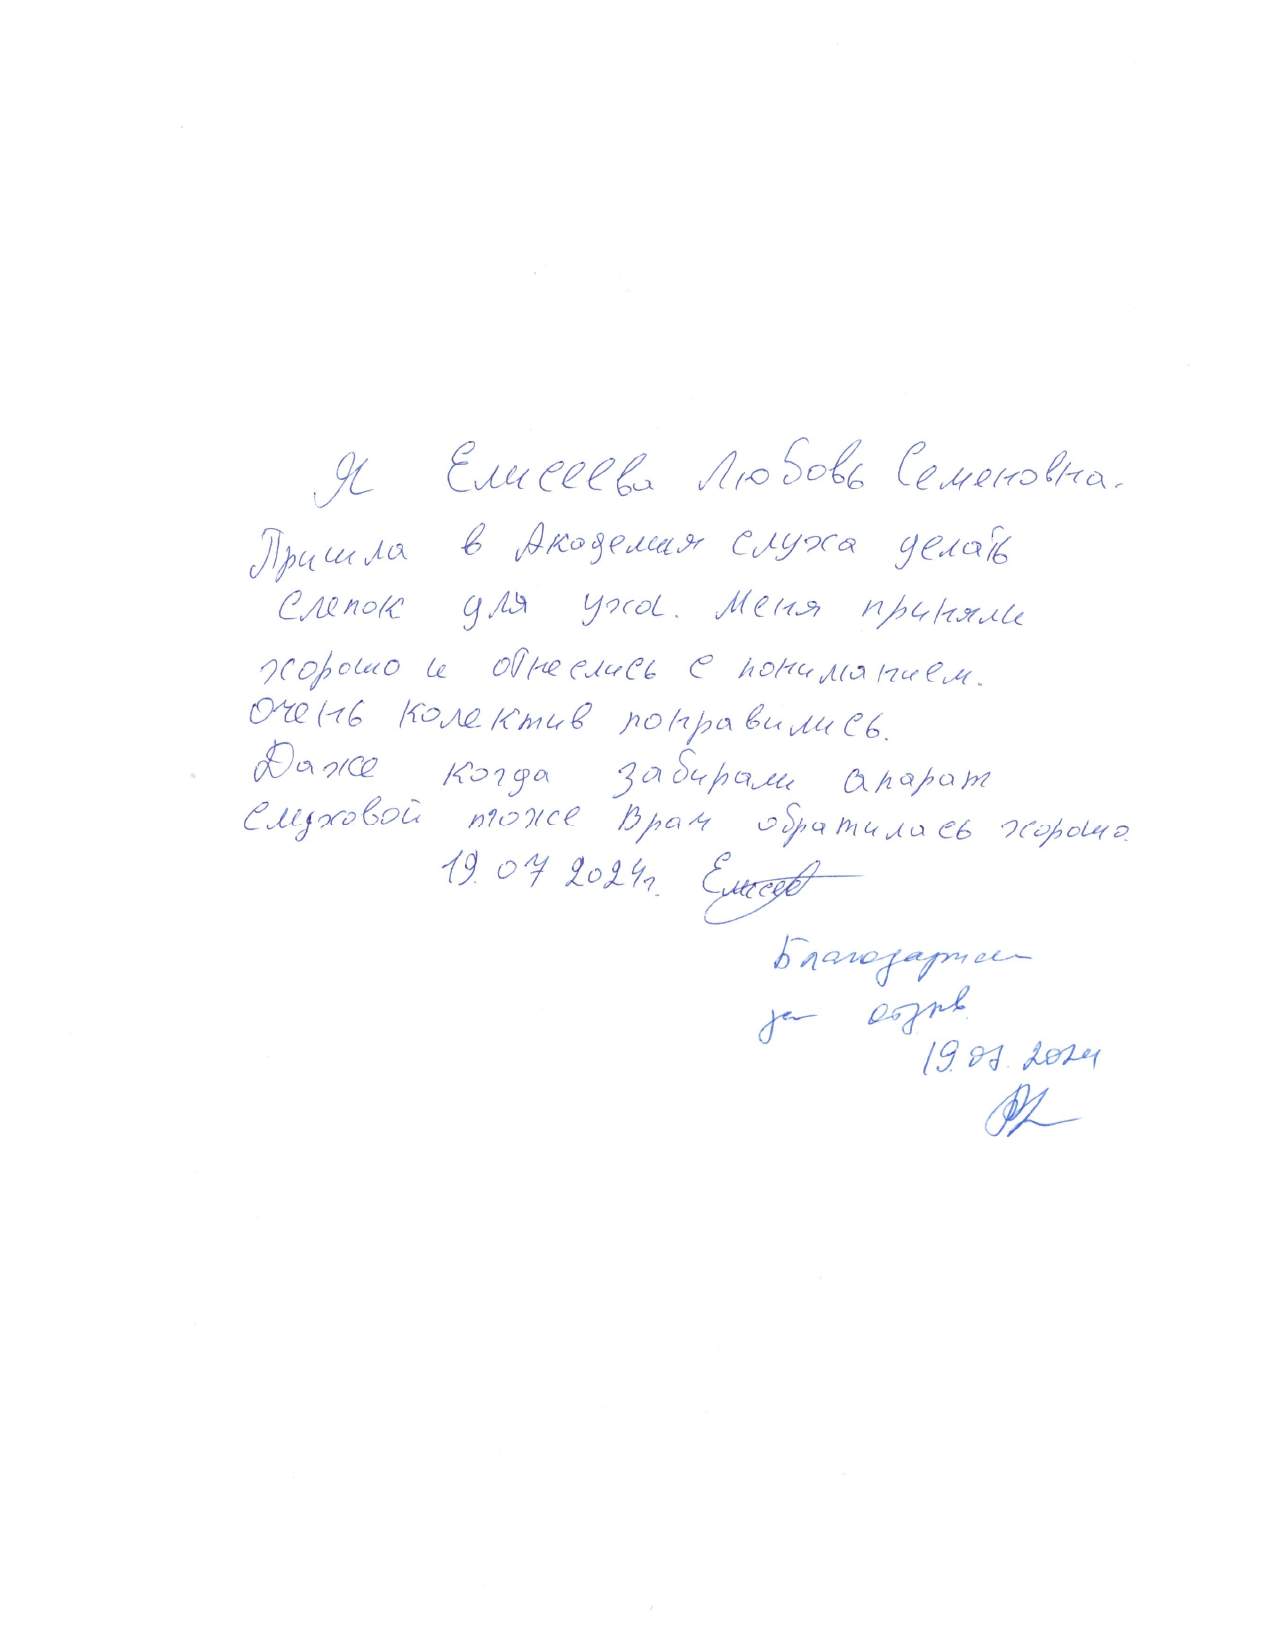 Я Елисеева Любовь Семеновна.
Пришла в Академия слуха делать
слепок для уха. Меня приняли
хорошо и отнеслись с пониманием.
очень колектив понравились.
Даже когда забирали апарат
слуховой тоже врач обратилась хорошо.
19.07 2024г. Елисеев
Благодарим
за отзыв
19.07.2024